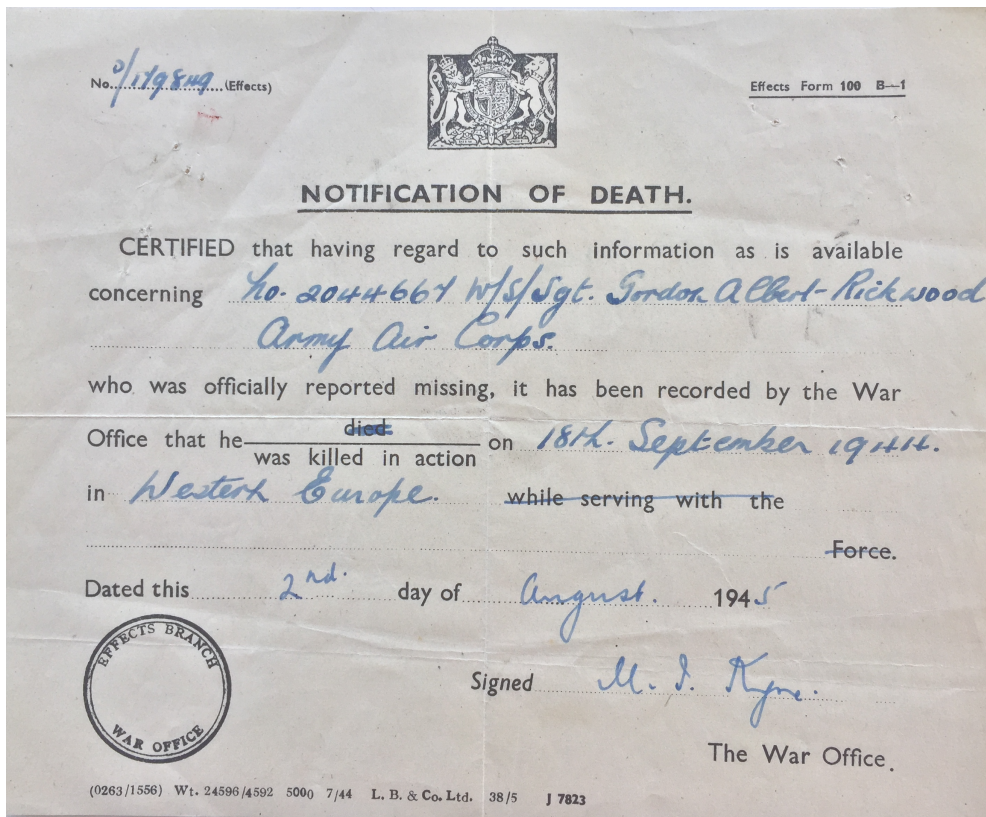 No. 0/179849 (Effects)
Effects Form 100 B—1
NOTIFICATION OF DEATH.
CERTIFIED that having regard to such information as is available
concerning No. 2044667 W/S/Sgt. Gordon Albert Rickwood
Army Air Corps.
who was officially reported missing, it has been recorded by the War
died
Office that he on 18th. September 1944.
was killed in action
in Western Europe. while serving with the
Force.
Dated this 2nd. day of August. 1945
EFFECTS BRANCH
WAR OFFICE
Signed M. I. Kyne.
The War Office.
(0263/1556) Wt. 24596/4592 5000 7/44 L. B. & Co. Ltd. 38/5 J 7823